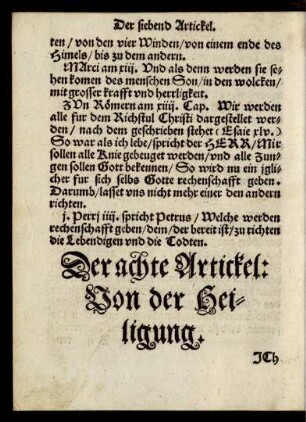 Der siebend Artickel.
ten / von den vier Winden / von einem ende des
Himels / bis zu dem andern.
Marci am xiij. Vnd als denn werden sie se-
hen komen des menschen Son / in den wolcken /
mit grosser krafft vnd herrligkeit.
ZVn Römern am xiiij. Cap. Wir werden
alle für dem Richstul Christi dargestellet wer-
den / nach dem geschrieben stehet (Esaie xlv.)
So war als ich lebe / spricht der HERR / Mir
sollen alle Knie gebeuget werden / vnd alle Zun-
gen sollen Gott bekennen / So wird nu ein jgli-
cher für sich selbs Gotte rechenschafft geben.
Darumb / lasset vns nicht mehr einer den andern
richten.
j. Petrj iiij. spricht Petrus / Welche werden
rechenschafft geben / dem / der bereit ist / zu richten
die Lebendigen vnd die Todten.
Der achte Artickel:
Von der Hei-
ligung.
JCh